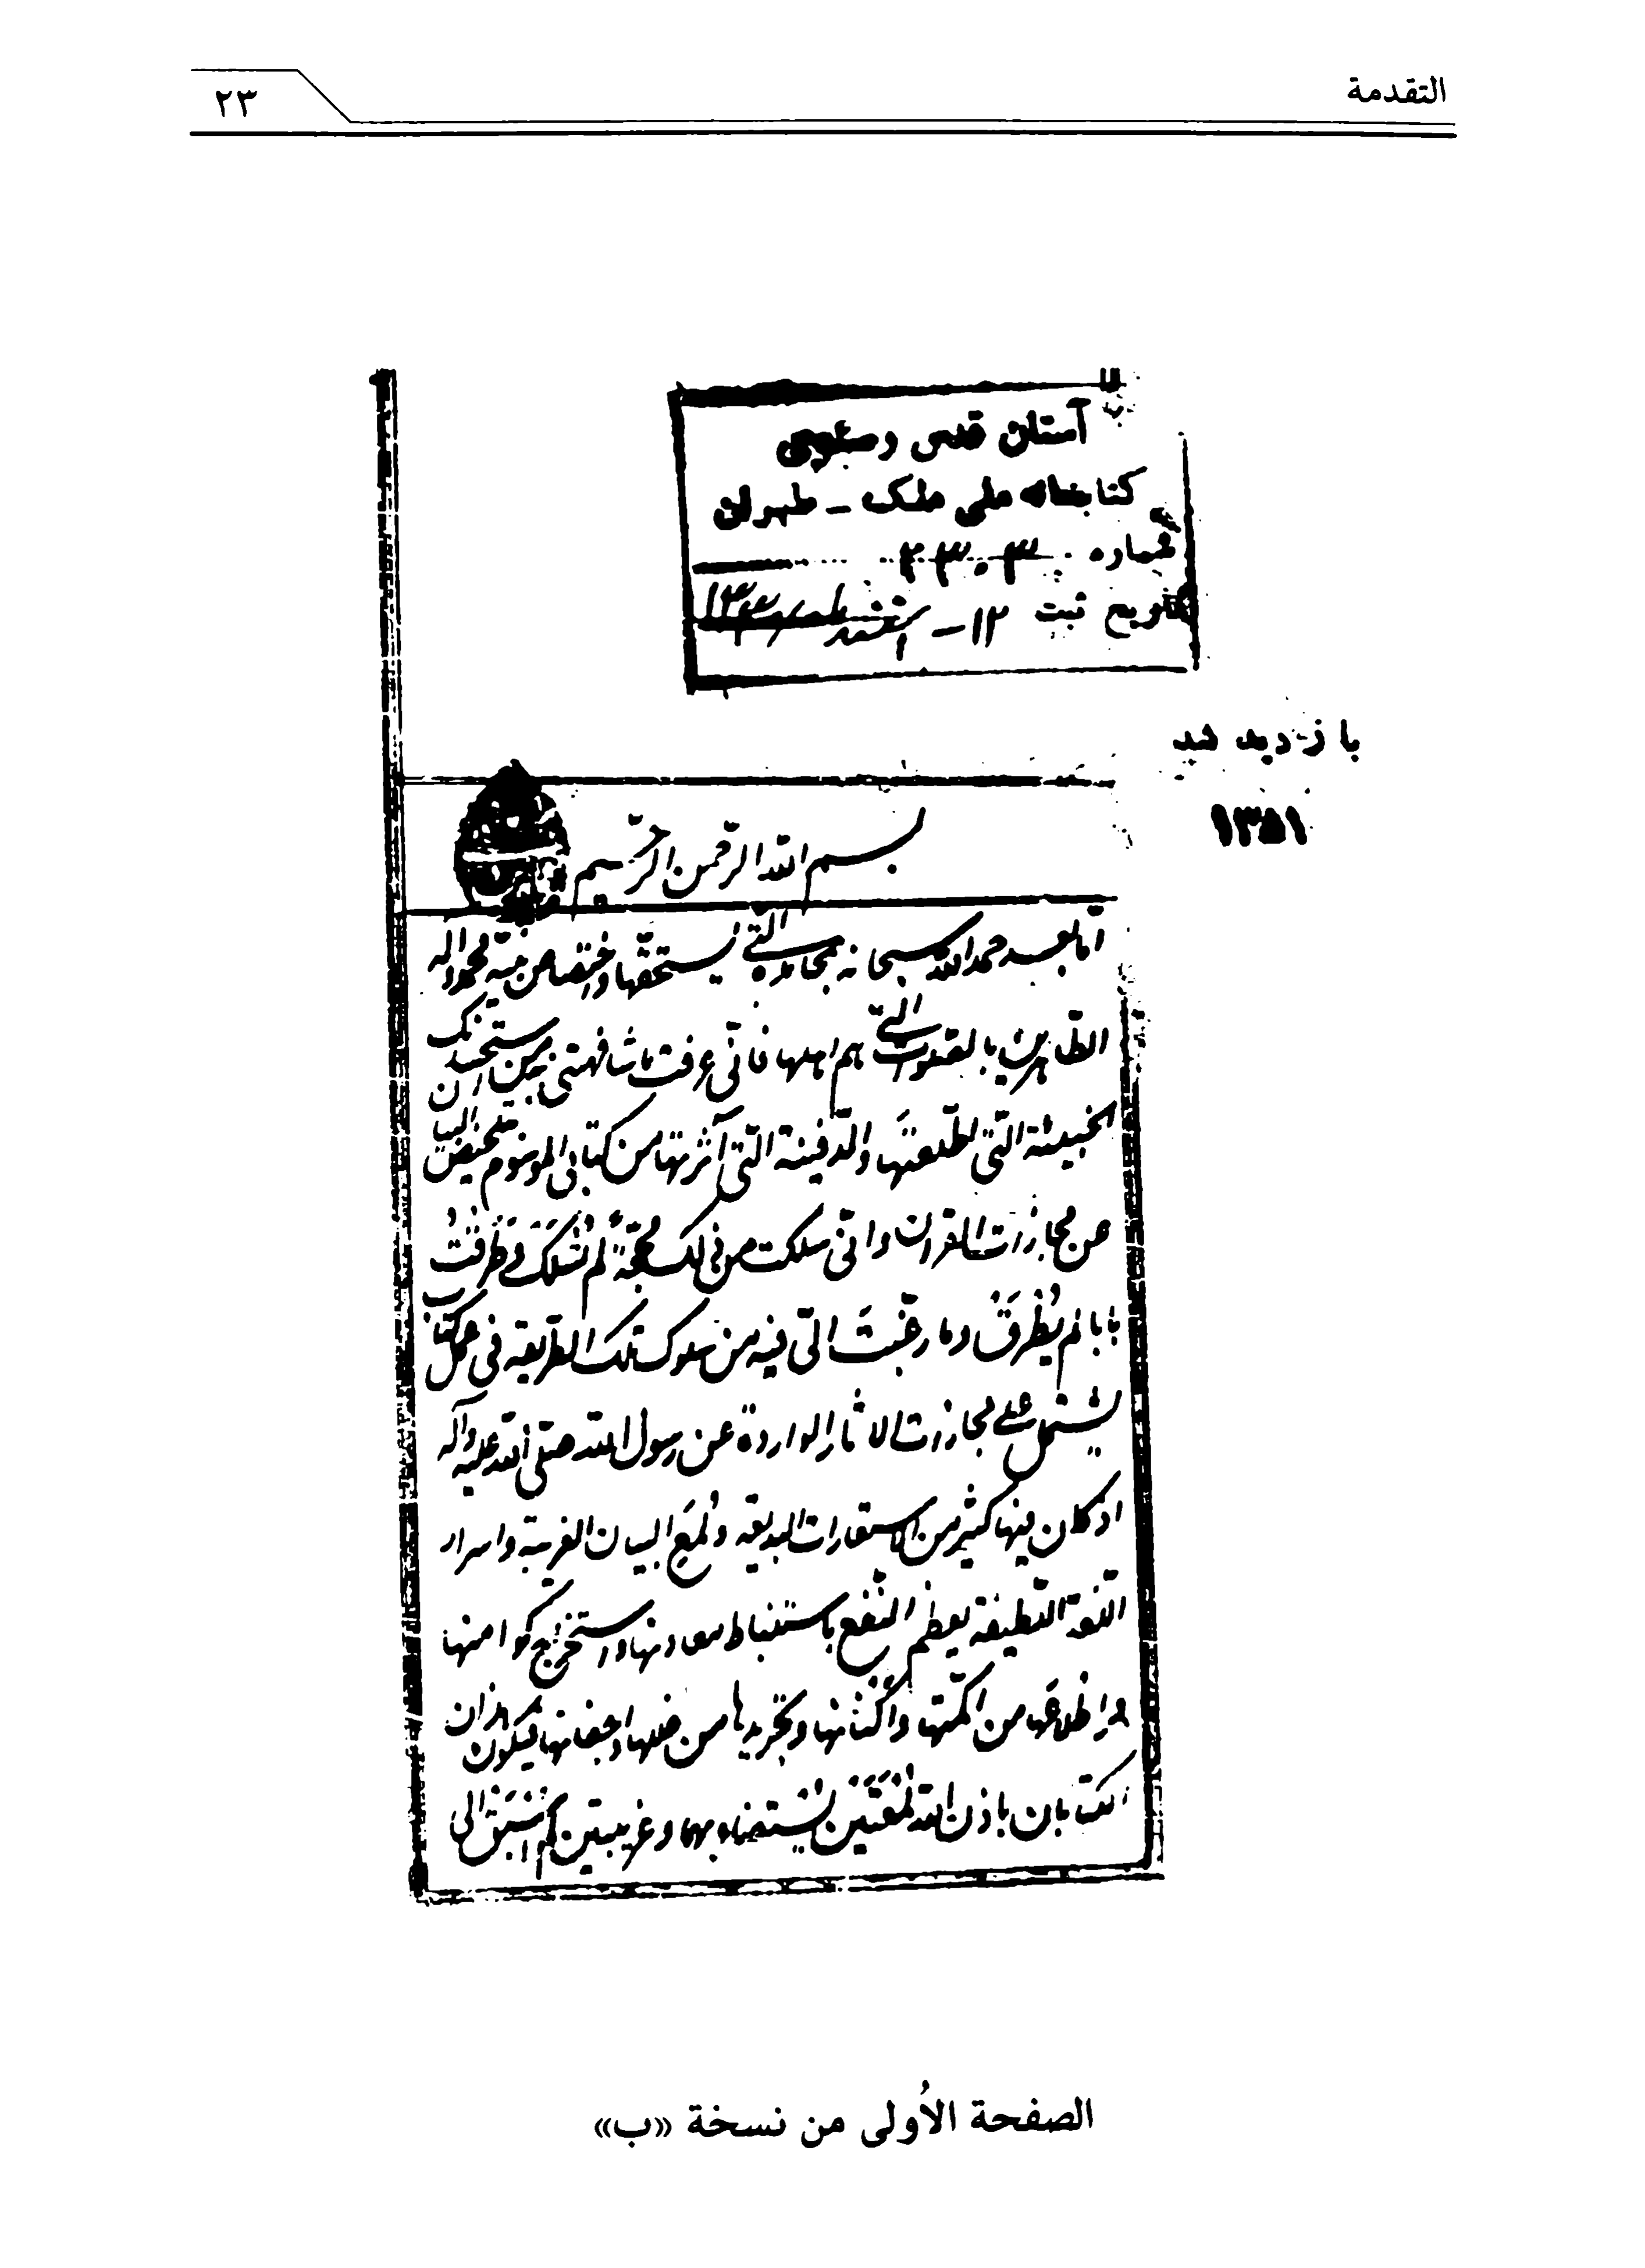 التقدمة
٢٣
آستان قدس رضوی
کتابخانه ملی ملک - طهران
شماره ٢٣٠٣
تاریخ ثبت ١٢ - اسفند
بازدید شد
١٣٥١
بسم الله الرحمن الرحیم
اما بعد حمد الله سبحانه بمحامده التی یستحقها واختصاص نبیه محمد واله
الطاهرین بالصلوات التی هم اهلها فانی عرفت ما شافهتنی به من استحسانک
الخبیئة التی اطلعتها والدفینة التی آثرتها من کتابی الموسوم بتلخیص البیان
عن مجازات القرآن وانی سلکت من ذلک محجة لم تُسْلَک وطَرَقْتُ
بابا لم یُطْرَق وما رغبتَ الیّ فیه من سلوک تلک الطریقة فی عمل کتاب
یشتمل علی مجازات الاثار الواردة عن رسول الله صلی الله علیه وآله
اذ کان فیها کثیر من الاستعارات البدیعة ولُمَع البیان الغریبة واسرار
اللغة اللطیفة یعظم النفع باستنباط معادنها واستخراج کوامنها
واطلاعها من اکمتها واکنانها وتجریدها من خللها واجفانها فیکون هذان
الکتابان باذن الله لُمْعَتَیْن یُستضاء بهما وعرنینین لم اُسْبَق الی
الصفحة الأُولى من نسخة «ب»